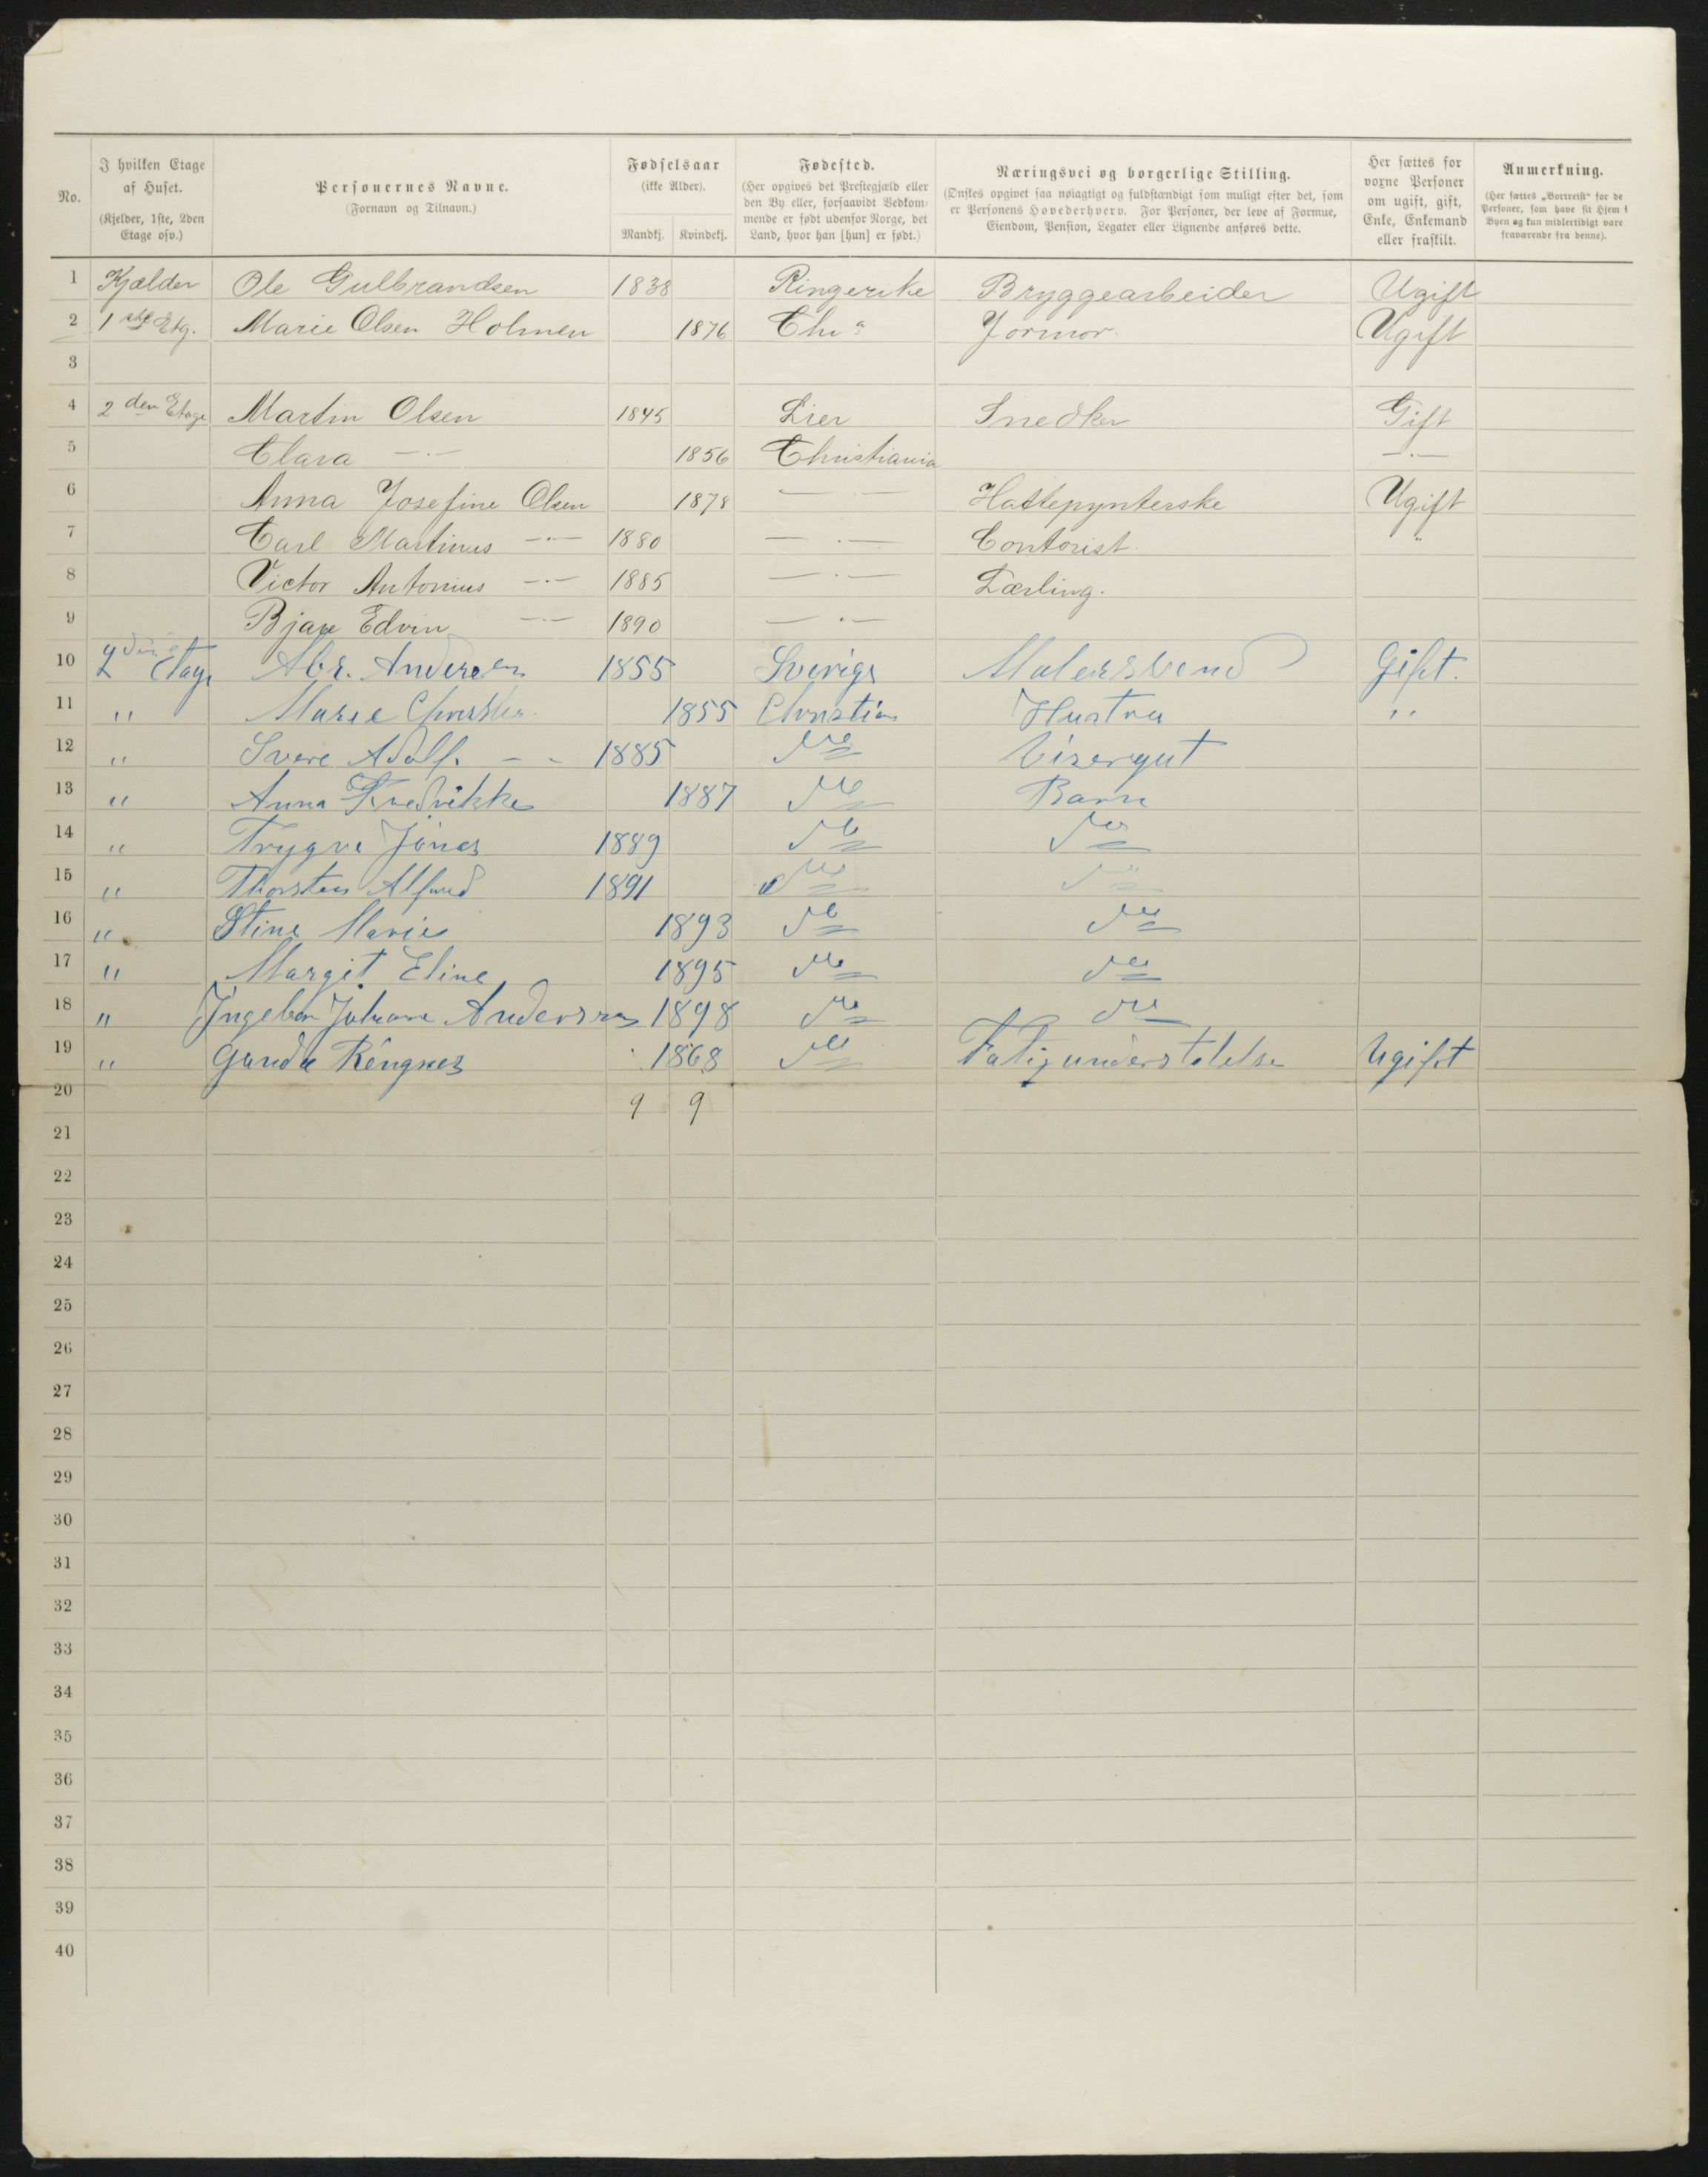 No.
I hvilken Etage af Huset. (Kjelder, 1ste, 2den Etage osv.)
Personernes Navne. (Fornavn og Tilnavn.)
Fødselsaar (ikke Alder).
Mandkj. Kvindekj.
Fødested. (Her opgives det Prestegjæld eller den By eller, forsaavidt Vedkommende er født udenfor Norge, det Land, hvor han [hun] er født.)
Næringsvei og borgerlige Stilling. (Ønskes opgivet saa nøiagtigt og fuldstændigt som muligt efter det, som er Personens Hovederhverv. For Personer, der leve af Formue, Eiendom, Pension, Legater eller Lignende anføres dette.
Her sættes for voxne Personer om ugift, gift, Enke, Enkemand eller fraskilt.
Anmerkning. (Her sættes „Bortreist" for de Personer, som have sit Hjem i Byen og kun midlertidigt vare fraværende fra denne).
1 Kjælder Ole Gulbrandsen 1838 Ringerike Bryggearbeider Ugift
2 1ste Etg. Marie Olsen Holmen 1876 Chr.a Jormor. Ugift
3
4 2den Etage Martin Olsen 1845 Lier Snedker Gift
5 Clara —·— 1856 Christiania —·—
6 Anna Josefine Olsen 1878 —·— Hattepynterske Ugift
7 Carl Martinus —·— 1880 —·— Contorist. "
8 Victor Antonius —·— 1885 —·— Lærling.
9 Bjane Edvin —·— 1890 —·—
10 2den Etage Abr. Andersen 1855 Sverige Malersvend Gift.
11 " Marie 1855 Christia Hustru "
12 " Svere Adolf. - - 1885 Do Visergut
13 " Anna Fredrikke 1887 Do Barn
14 " Trygve Jónas 1889 Do Do
15 " Thorsten Alfred 1891 Do Do
16 " Stine Marie 1893 Do Do
17 " Margit Eline 1895 Do Do
18 " Ingebor Johane Andersen 1898 Do Do
19 " Gunda Ringnes 1868 Do Fatigunderstølelse Ugift
20 9 9
21
22
23
24
25
26
27
28
29
30
31
32
33
34
35
36
37
38
39
40